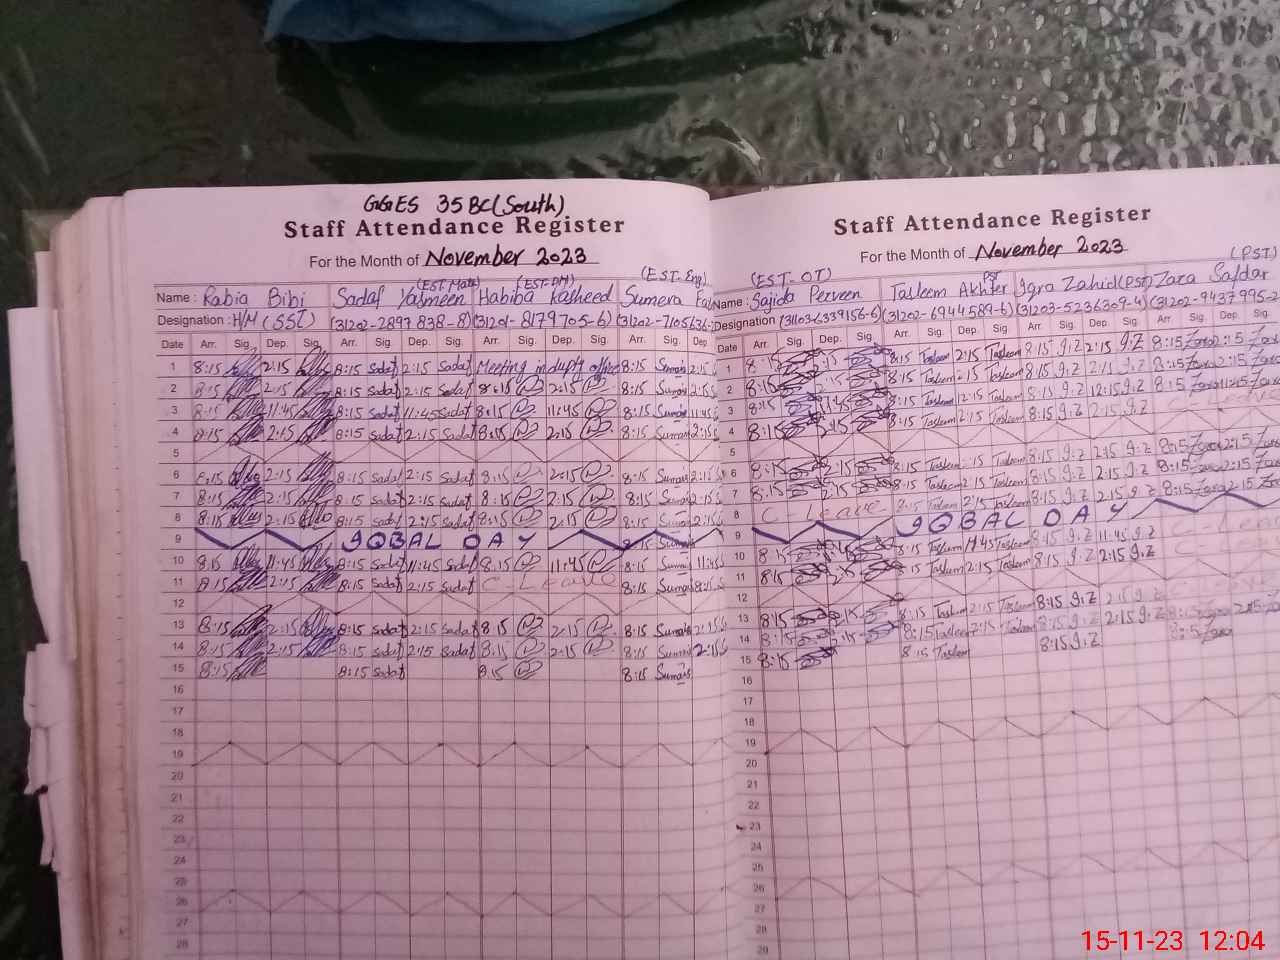 GGES 35 BC (South)
Staff Attendance Register
For the Month of November 2023
(EST. Math) (EST-DM) (EST-Eng)
Name : Rabia Bibi Sadaf Yasmeen Habiba Rasheed Sumera
Designation : H/M (SST) (31202-2897838-8) (31201-8179705-6) (31202-7105636-
Date Arr. Sig. Dep. Sig. Arr. Sig. Dep. Sig. Arr. Sig. Dep. Sig. Arr. Sig. Dep.
1 8:15 2:15 8:15 Sadaf 2:15 Sadaf Meeting in 8:15 2:15
2 8:15 2:15 8:15 Sadaf 2:15 Sadaf 8:15 2:15 8:15 2:15
3 8:15 11:45 8:15 Sadaf 11:45 Sadaf 8:15 11:45 8:15 11:45
4 8:15 2:15 8:15 Sadaf 2:15 Sadaf 8:15 2:15 8:15 2:15
5
6 8:15 2:15 8:15 Sadaf 2:15 Sadaf 8:15 2:15 8:15 2:15
7 8:15 2:15 8:15 Sadaf 2:15 Sadaf 8:15 2:15 8:15 2:15
8 8:15 2:15 8:15 Sadaf 2:15 Sadaf 8:15 2:15 8:15 2:15
9 IQBAL DAY 8:15
10 8:15 11:45 8:15 Sadaf 11:45 Sadaf 8:15 11:45 8:15 11:45
11 8:15 2:15 8:15 Sadaf 2:15 Sadaf C-Leave 8:15
12
13 8:15 2:15 8:15 Sadaf 2:15 Sadaf 8:15 2:15 8:15 2:15
14 8:15 2:15 8:15 Sadaf 2:15 Sadaf 8:15 2:15 8:15 2:15
15 8:15 8:15 Sadaf 8:15 8:15
16
17
18
19
20
21
22
23
24
25
26
27
28
Staff Attendance Register
For the Month of November 2023
(EST-OT) PST (PST)
Name : Sajida Perveen Tasleem Akhter Iqra Zahid (PST) Zara Safdar
Designation (31103-6339156-6) (31202-6944589-6) (31203-5236309-4) (31202-9437995-2
Date Arr. Sig. Dep. Sig. Arr. Sig. Dep. Sig. Arr. Sig. Dep. Sig. Arr. Sig. Dep. Sig.
1 8:15 8:15 Tasleem 2:15 Tasleem 8:15 I.Z 2:15 I.Z 8:15 Zara 2:15
2 8:15 2:15 8:15 Tasleem 2:15 Tasleem 8:15 I.Z 2:15 I.Z 8:15 Zara 2:15
3 8:15 11:45 8:15 Tasleem 12:15 Tasleem 8:15 I.Z 12:15 I.Z 8:15 Zara 11:45
4 8:15 2:15 8:15 Tasleem 2:15 Tasleem 8:15 I.Z 2:15 I.Z C-Leave
5
6 8:15 2:15 8:15 Tasleem 2:15 Tasleem 8:15 I.Z 2:15 I.Z 8:15 Zara 2:15
7 8:15 2:15 8:15 Tasleem 2:15 Tasleem 8:15 I.Z 2:15 I.Z 8:15 Zara 2:15
8 C-Leave 8:15 Tasleem 2:15 Tasleem 8:15 I.Z 2:15 I.Z 8:15 Zara 2:15
9 IQBAL DAY
10 8:15 11:45 8:15 Tasleem 11:45 Tasleem 8:15 I.Z 11:45 I.Z C-Leave
11 8:15 2:15 8:15 Tasleem 2:15 Tasleem 8:15 I.Z 2:15 I.Z C-
12
13 8:15 2:15 8:15 Tasleem 2:15 Tasleem 8:15 I.Z 2:15 I.Z 8:15 2:15
14 8:15 2:15 8:15 Tasleem 2:15 Tasleem 8:15 I.Z 2:15 I.Z
15 8:15 8:15 Tasleem 8:15 I.Z 8:15 Zara
16
17
18
19
20
21
22
23
24
25
26
27
28
29
15-11-23 12:04